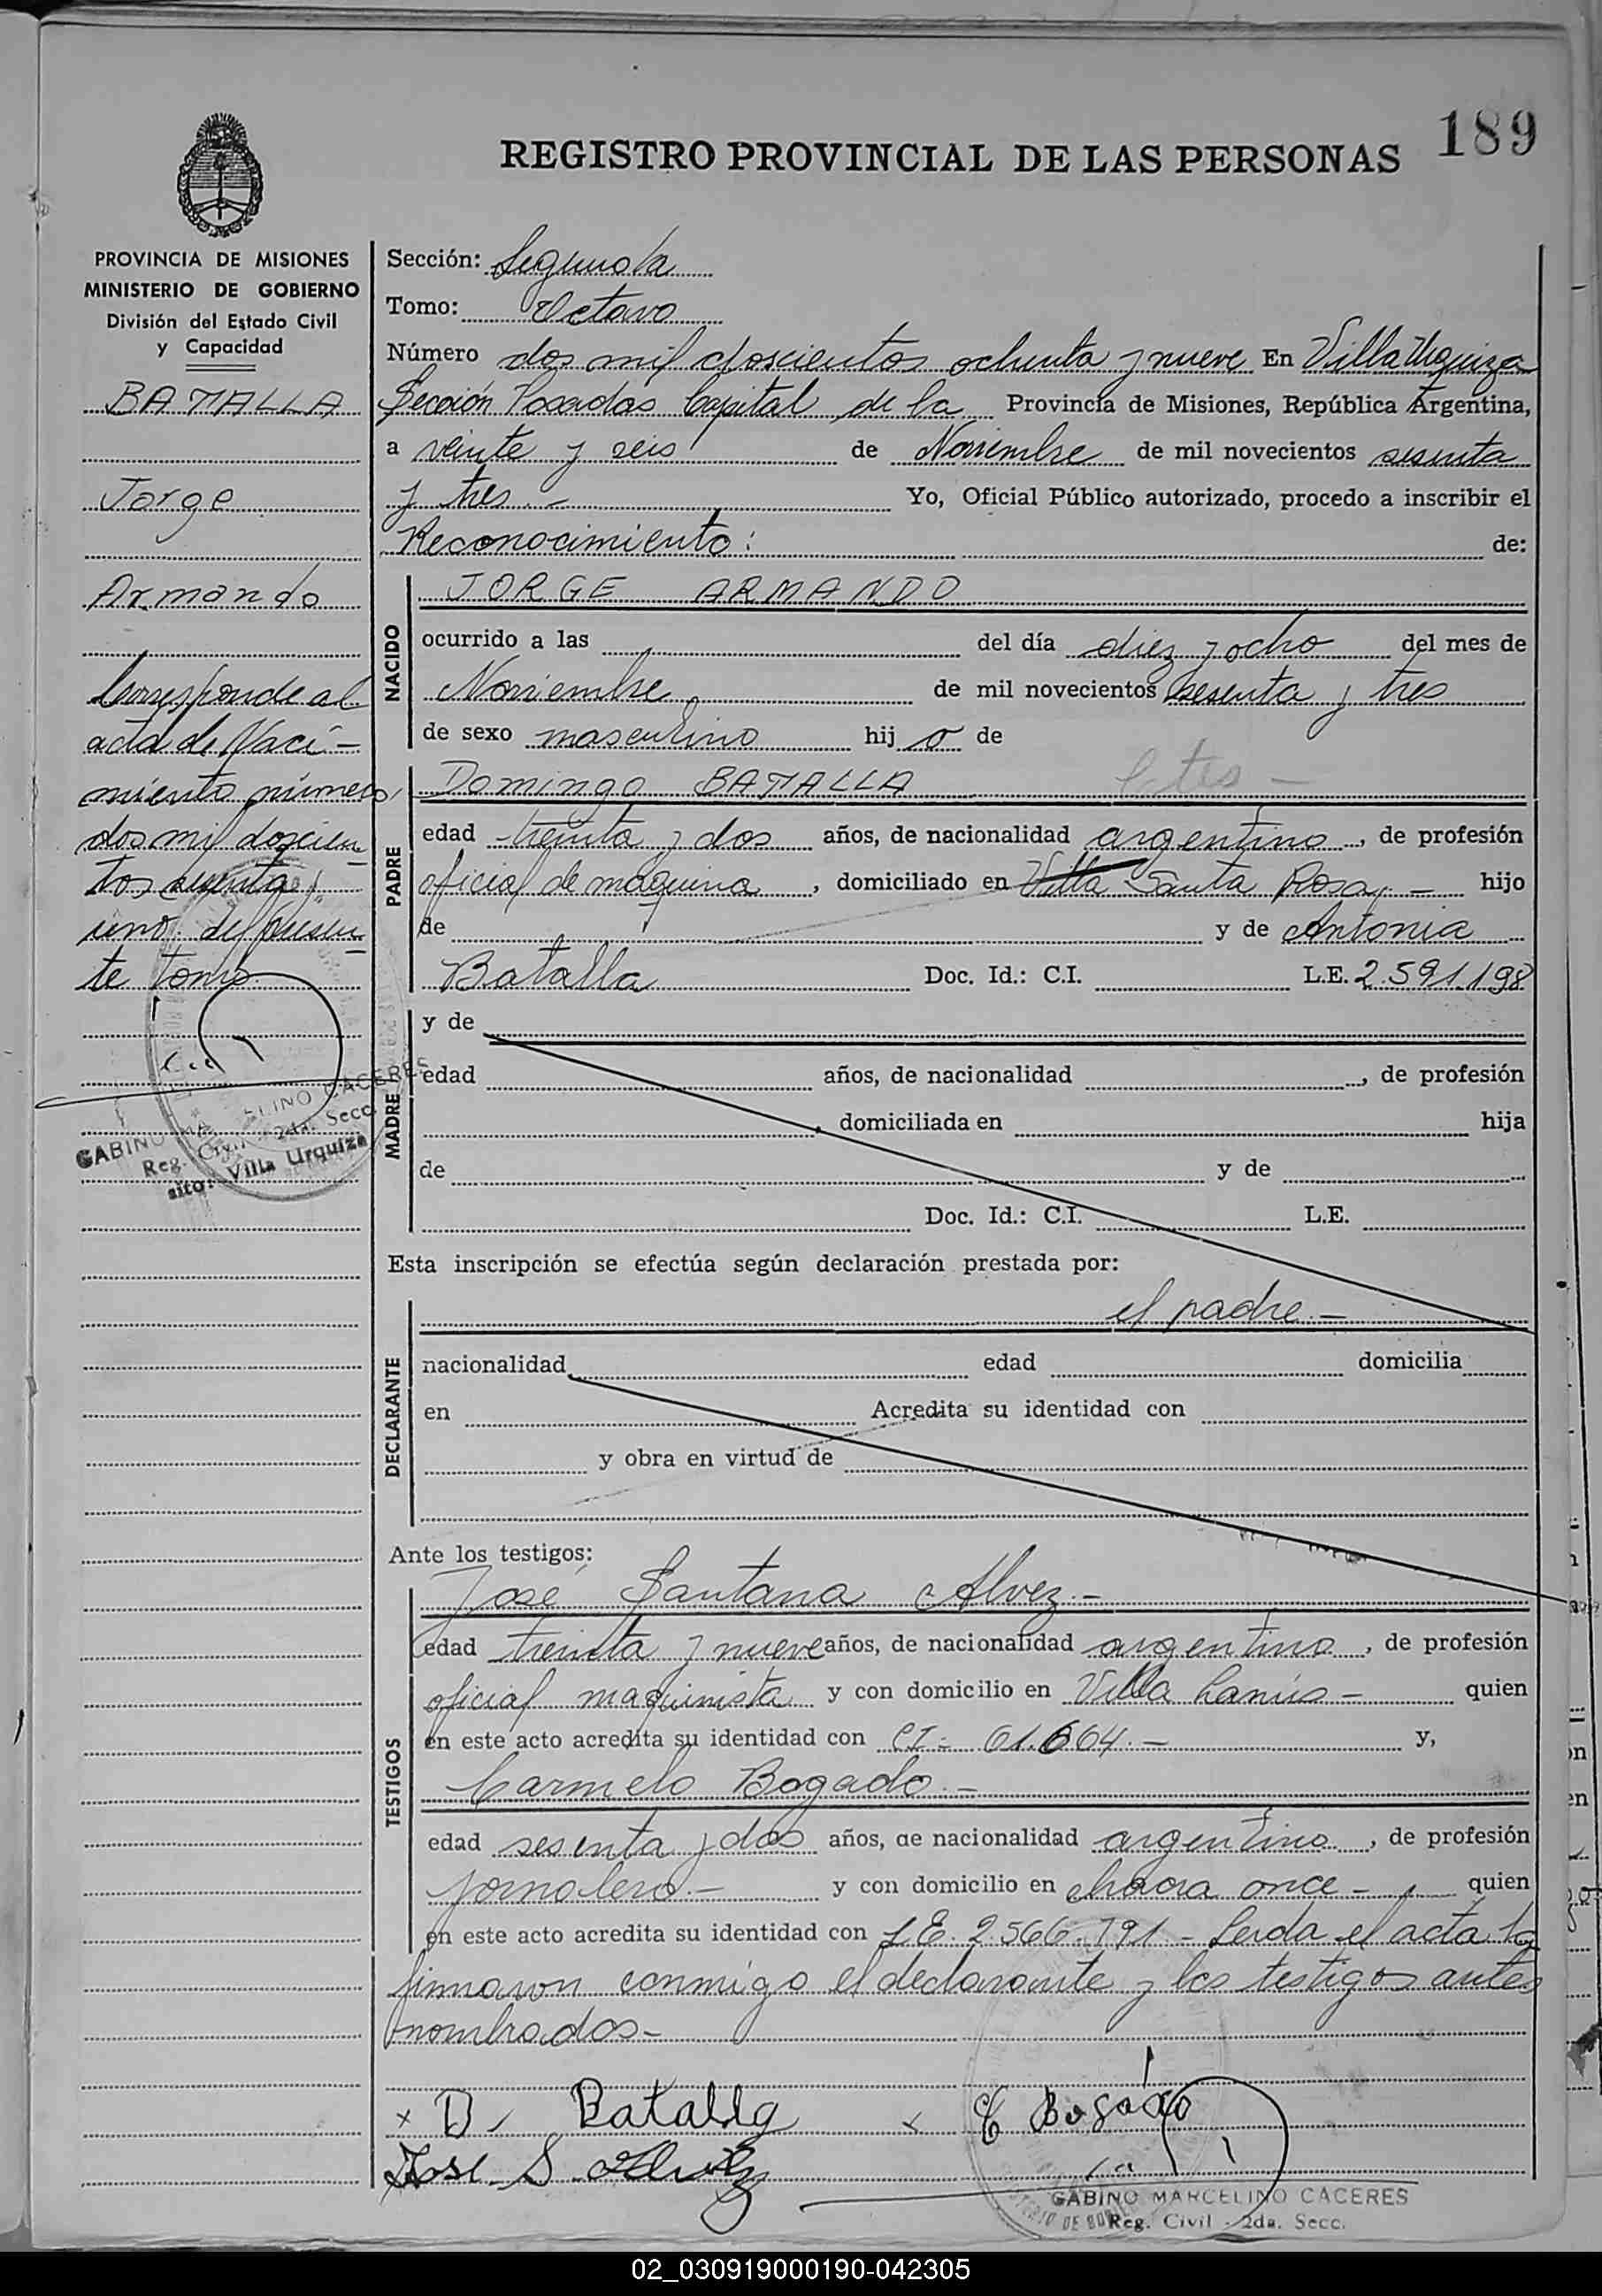 189
REGISTRO PROVINCIAL DE LAS PERSONAS
PROVINCIA DE MISIONES
MINISTERIO DE GOBIERNO
División del Estado Civil
y Capacidad
BATALLA
Jorge
Armando
Corresponde al
acta de Naci-
miento número
dos mil doscien
tos sesenta y
uno del presen
te tomo
GABINO MARCELINO CACERES
Reg. Civil - 2da. Secc.
sito: Villa Urquiza
Sección: Segunda
Tomo: Octavo
Número dos mil doscientos ochenta y nueve En Villa Urquiza
Sección Posadas Capital de la Provincia de Misiones, República Argentina,
a veinte y seis de Noviembre de mil novecientos sesenta
y tres.- Yo, Oficial Público autorizado, procedo a inscribir el
Reconocimiento: de:
NACIDO
JORGE ARMANDO
ocurrido a las del día diez y ocho del mes de
Noviembre de mil novecientos sesenta y tres
de sexo masculino hijo de
PADRE
Domingo BATALLA
edad treinta y dos años, de nacionalidad argentino, de profesión
oficial de máquina, domiciliado en Villa Santa Rosa, - hijo
de y de Antonia
Batalla Doc. Id.: C.I. L.E. 2.591.198
MADRE
y de
edad años, de nacionalidad , de profesión
, domiciliada en hija
de y de
Doc. Id.: C.I. L.E.
Esta inscripción se efectúa según declaración prestada por:
el padre.-
DECLARANTE
nacionalidad edad domicilia
en Acredita su identidad con
y obra en virtud de
Ante los testigos:
TESTIGOS
José Santana Alvez.-
edad treinta y nueve años, de nacionalidad argentino, de profesión
oficial maquinista y con domicilio en Villa Lanús - quien
en este acto acredita su identidad con CI - 61.664.- y,
Carmelo Bogado.-
edad sesenta y dos años, de nacionalidad argentino, de profesión
jornalero.- y con domicilio en chacra once - quien
en este acto acredita su identidad con L.E. 2.566.791 - Leida el acta la
firmaron conmigo el declarante y los testigos antes
nombrados-
x D. Batalla x C Bogado
Jose S Alvez
GABINO MARCELINO CACERES
Reg. Civil - 2da. Secc.
02_030919000190-042305